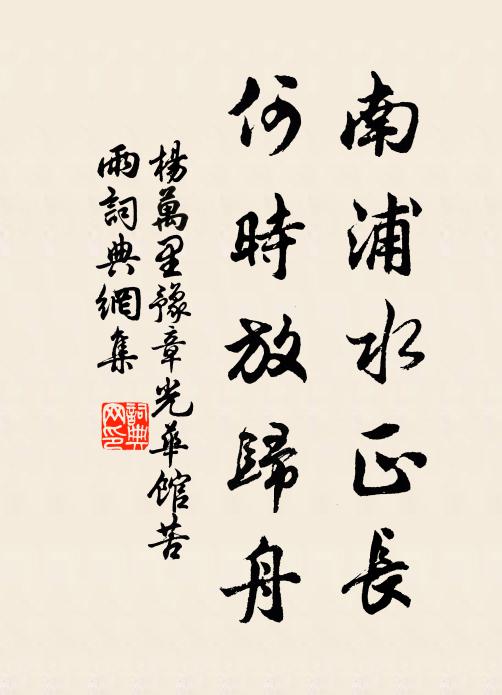 南浦水正長
何時放歸舟
楊萬里豫章光華館苦
雨詞典網集
詞典网印